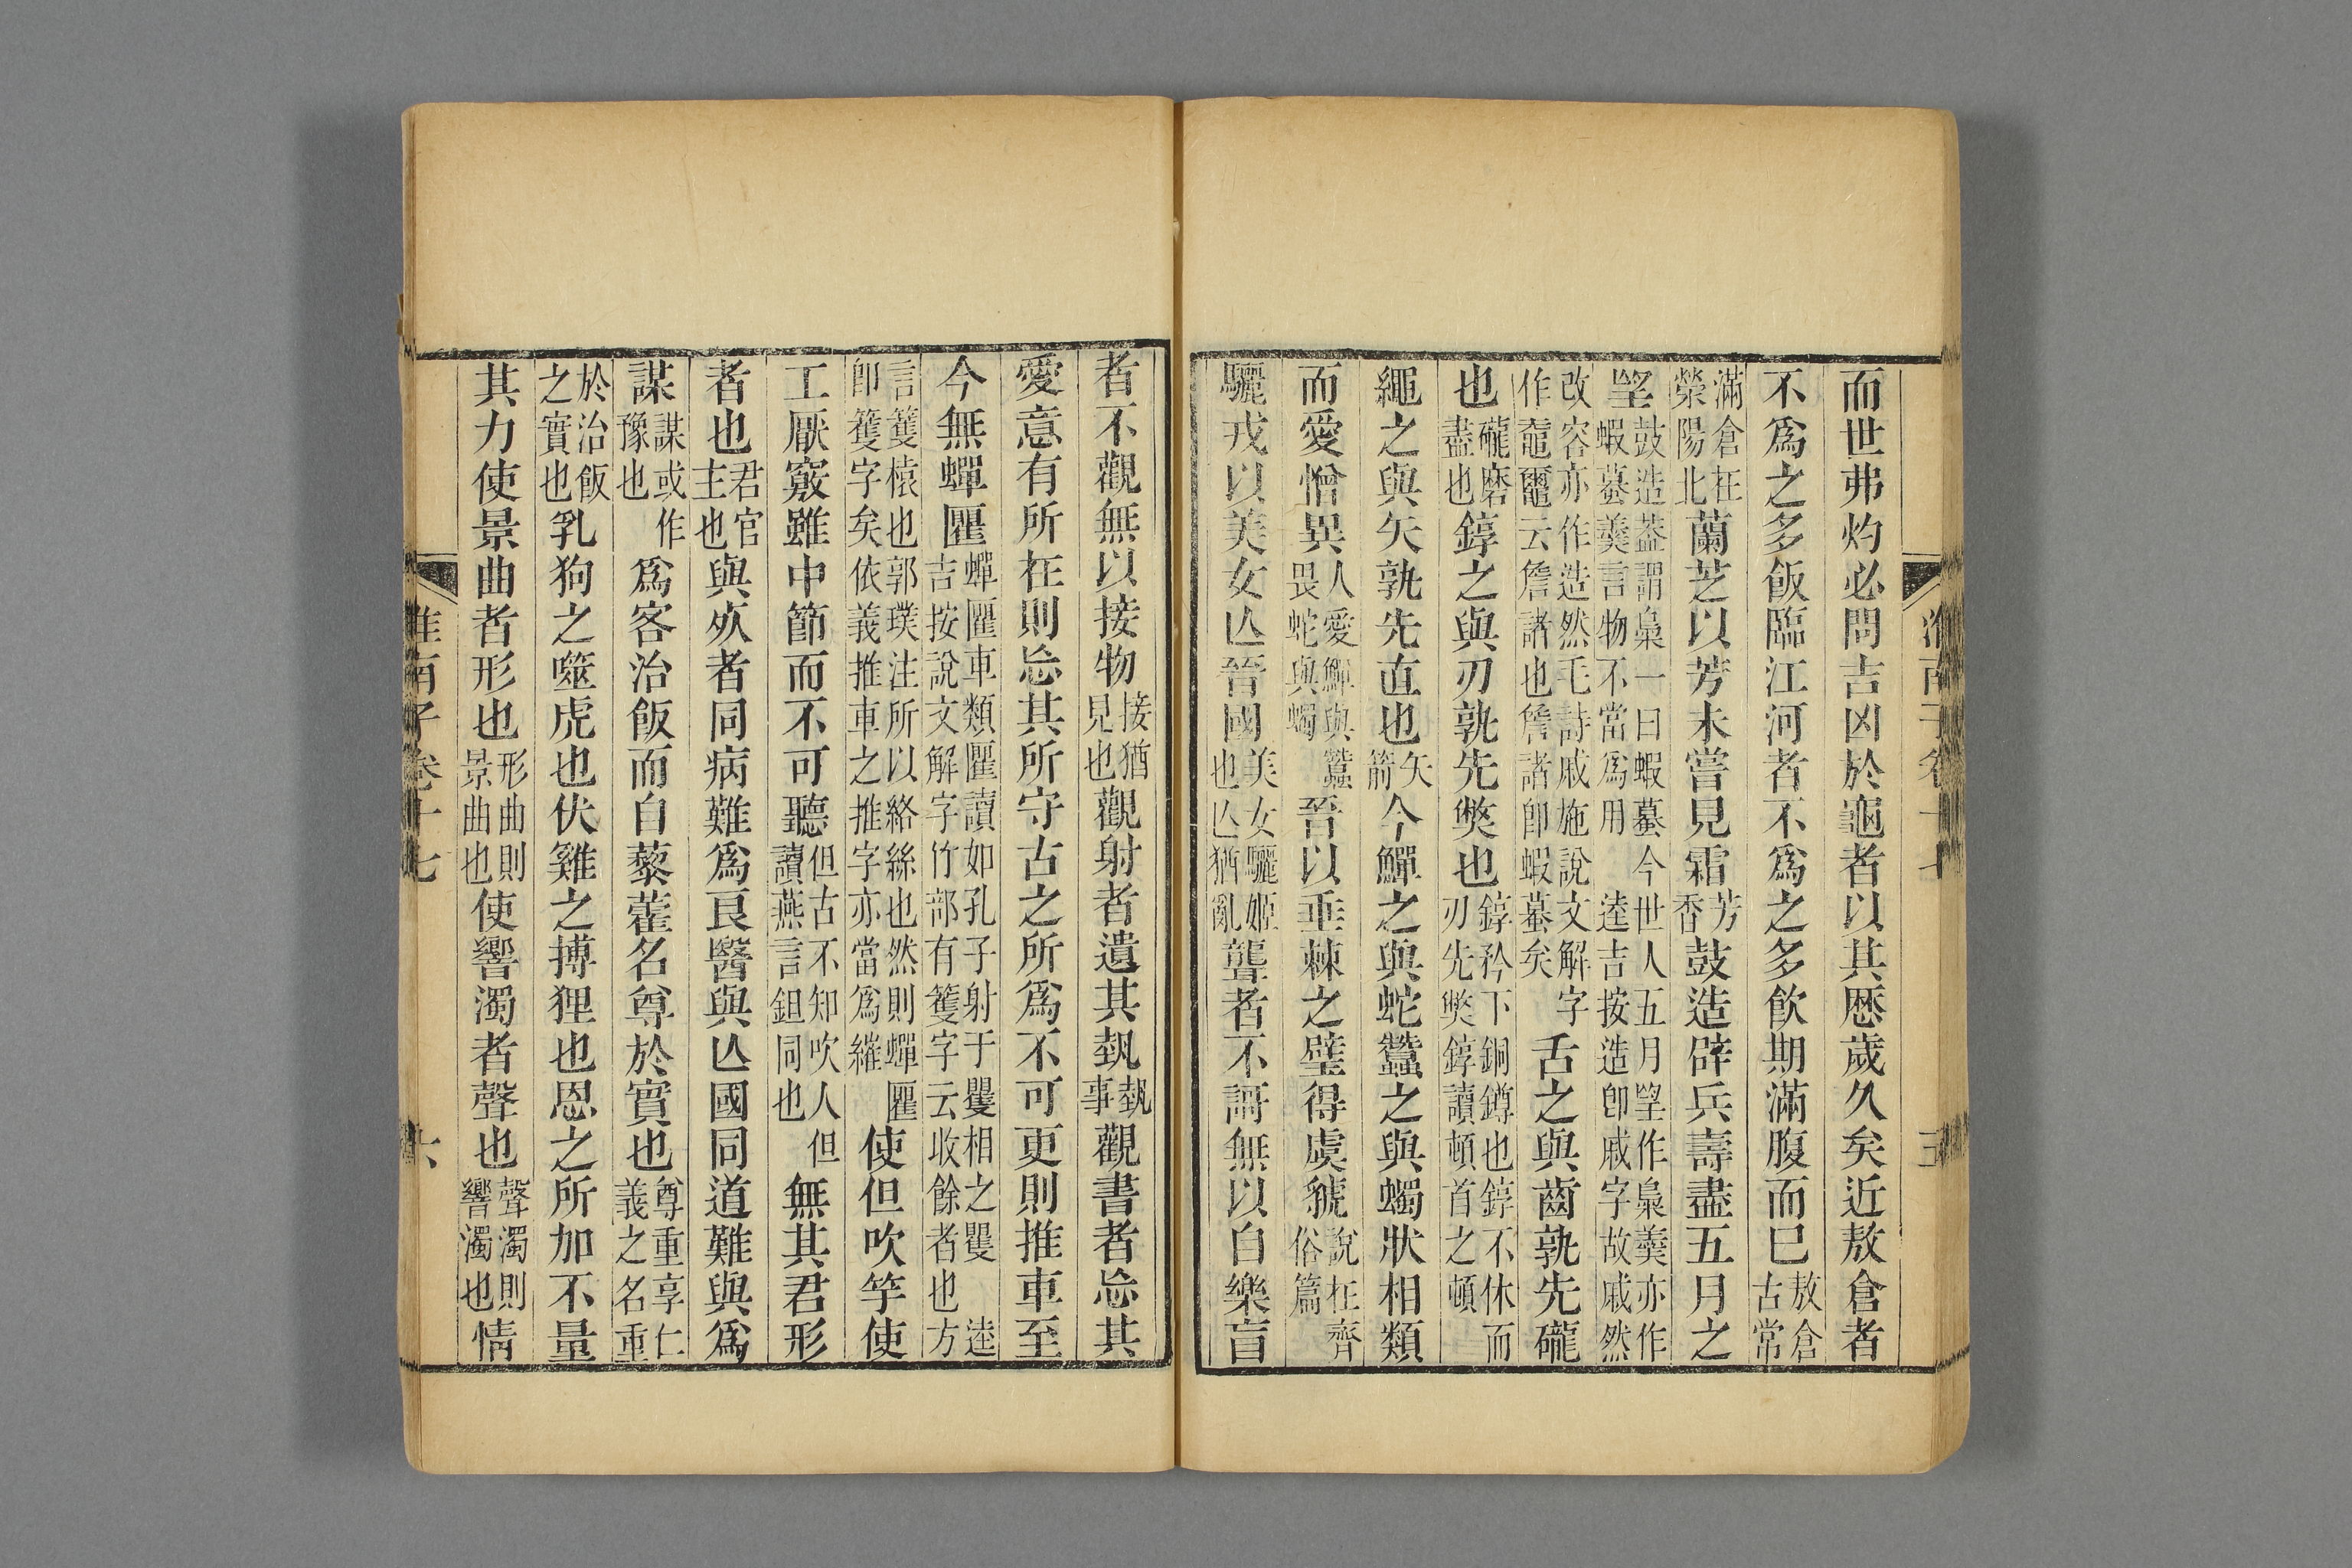 淮南子卷十七　五
而世弗灼必問吉凶於龜者以其歷歲久矣近敖倉者
不爲之多飯臨江河者不爲之多飲期滿腹而已敖倉古常
滿倉在滎陽北蘭芝以芳未嘗見霜芳香鼓造辟兵壽盡五月之
朢鼓造葢謂梟一曰蝦蟇今世人五月朢作梟羹亦作蝦蟇羹言物不當爲用逵吉按造卽戚字故戚然
改容亦作造然毛詩戚施說文解字作䵶䵹云詹諸也詹諸卽蝦蟇矣舌之與齒孰先礲
也礲磨盡也錞之與刃孰先獘也錞矜下銅鐏也錞不休而刃先獘錞讀頓首之頓
繩之與矢孰先直也矢箭今鱓之與蛇蠶之與蠋狀相類
而愛憎異人愛鱓與蠶畏蛇與蠋晉以垂棘之璧得虞虢說在齊俗篇
驪戎以美女亾晉國美女驪姬也亾猶亂聾者不謌無以自樂盲
者不觀無以接物接猶見也觀射者遺其埶埶事觀書者忘其
愛意有所在則忘其所守古之所爲不可更則推車至
今無蟬匷蟬匷車類匷讀如孔子射于矍相之矍逵吉按說文解字竹部有籰字云收餘者也方
言籰榬也郭璞注所以絡絲也然則蟬匷卽籰字矣依義推車之推字亦當爲維使但吹竽使
工厭竅雖中節而不可聽但古不知吹人但讀燕言鉏同也無其君形
者也君官主也與死者同病難爲良醫與亾國同道難與爲
謀謀或作豫也爲客治飯而自藜藿名尊於實也尊重享仁義之名重
於治飯之實也乳狗之噬虎也伏雞之搏狸也恩之所加不量
其力使景曲者形也形曲則景曲也使響濁者聲也聲濁則響濁也情
淮南子卷十七　六